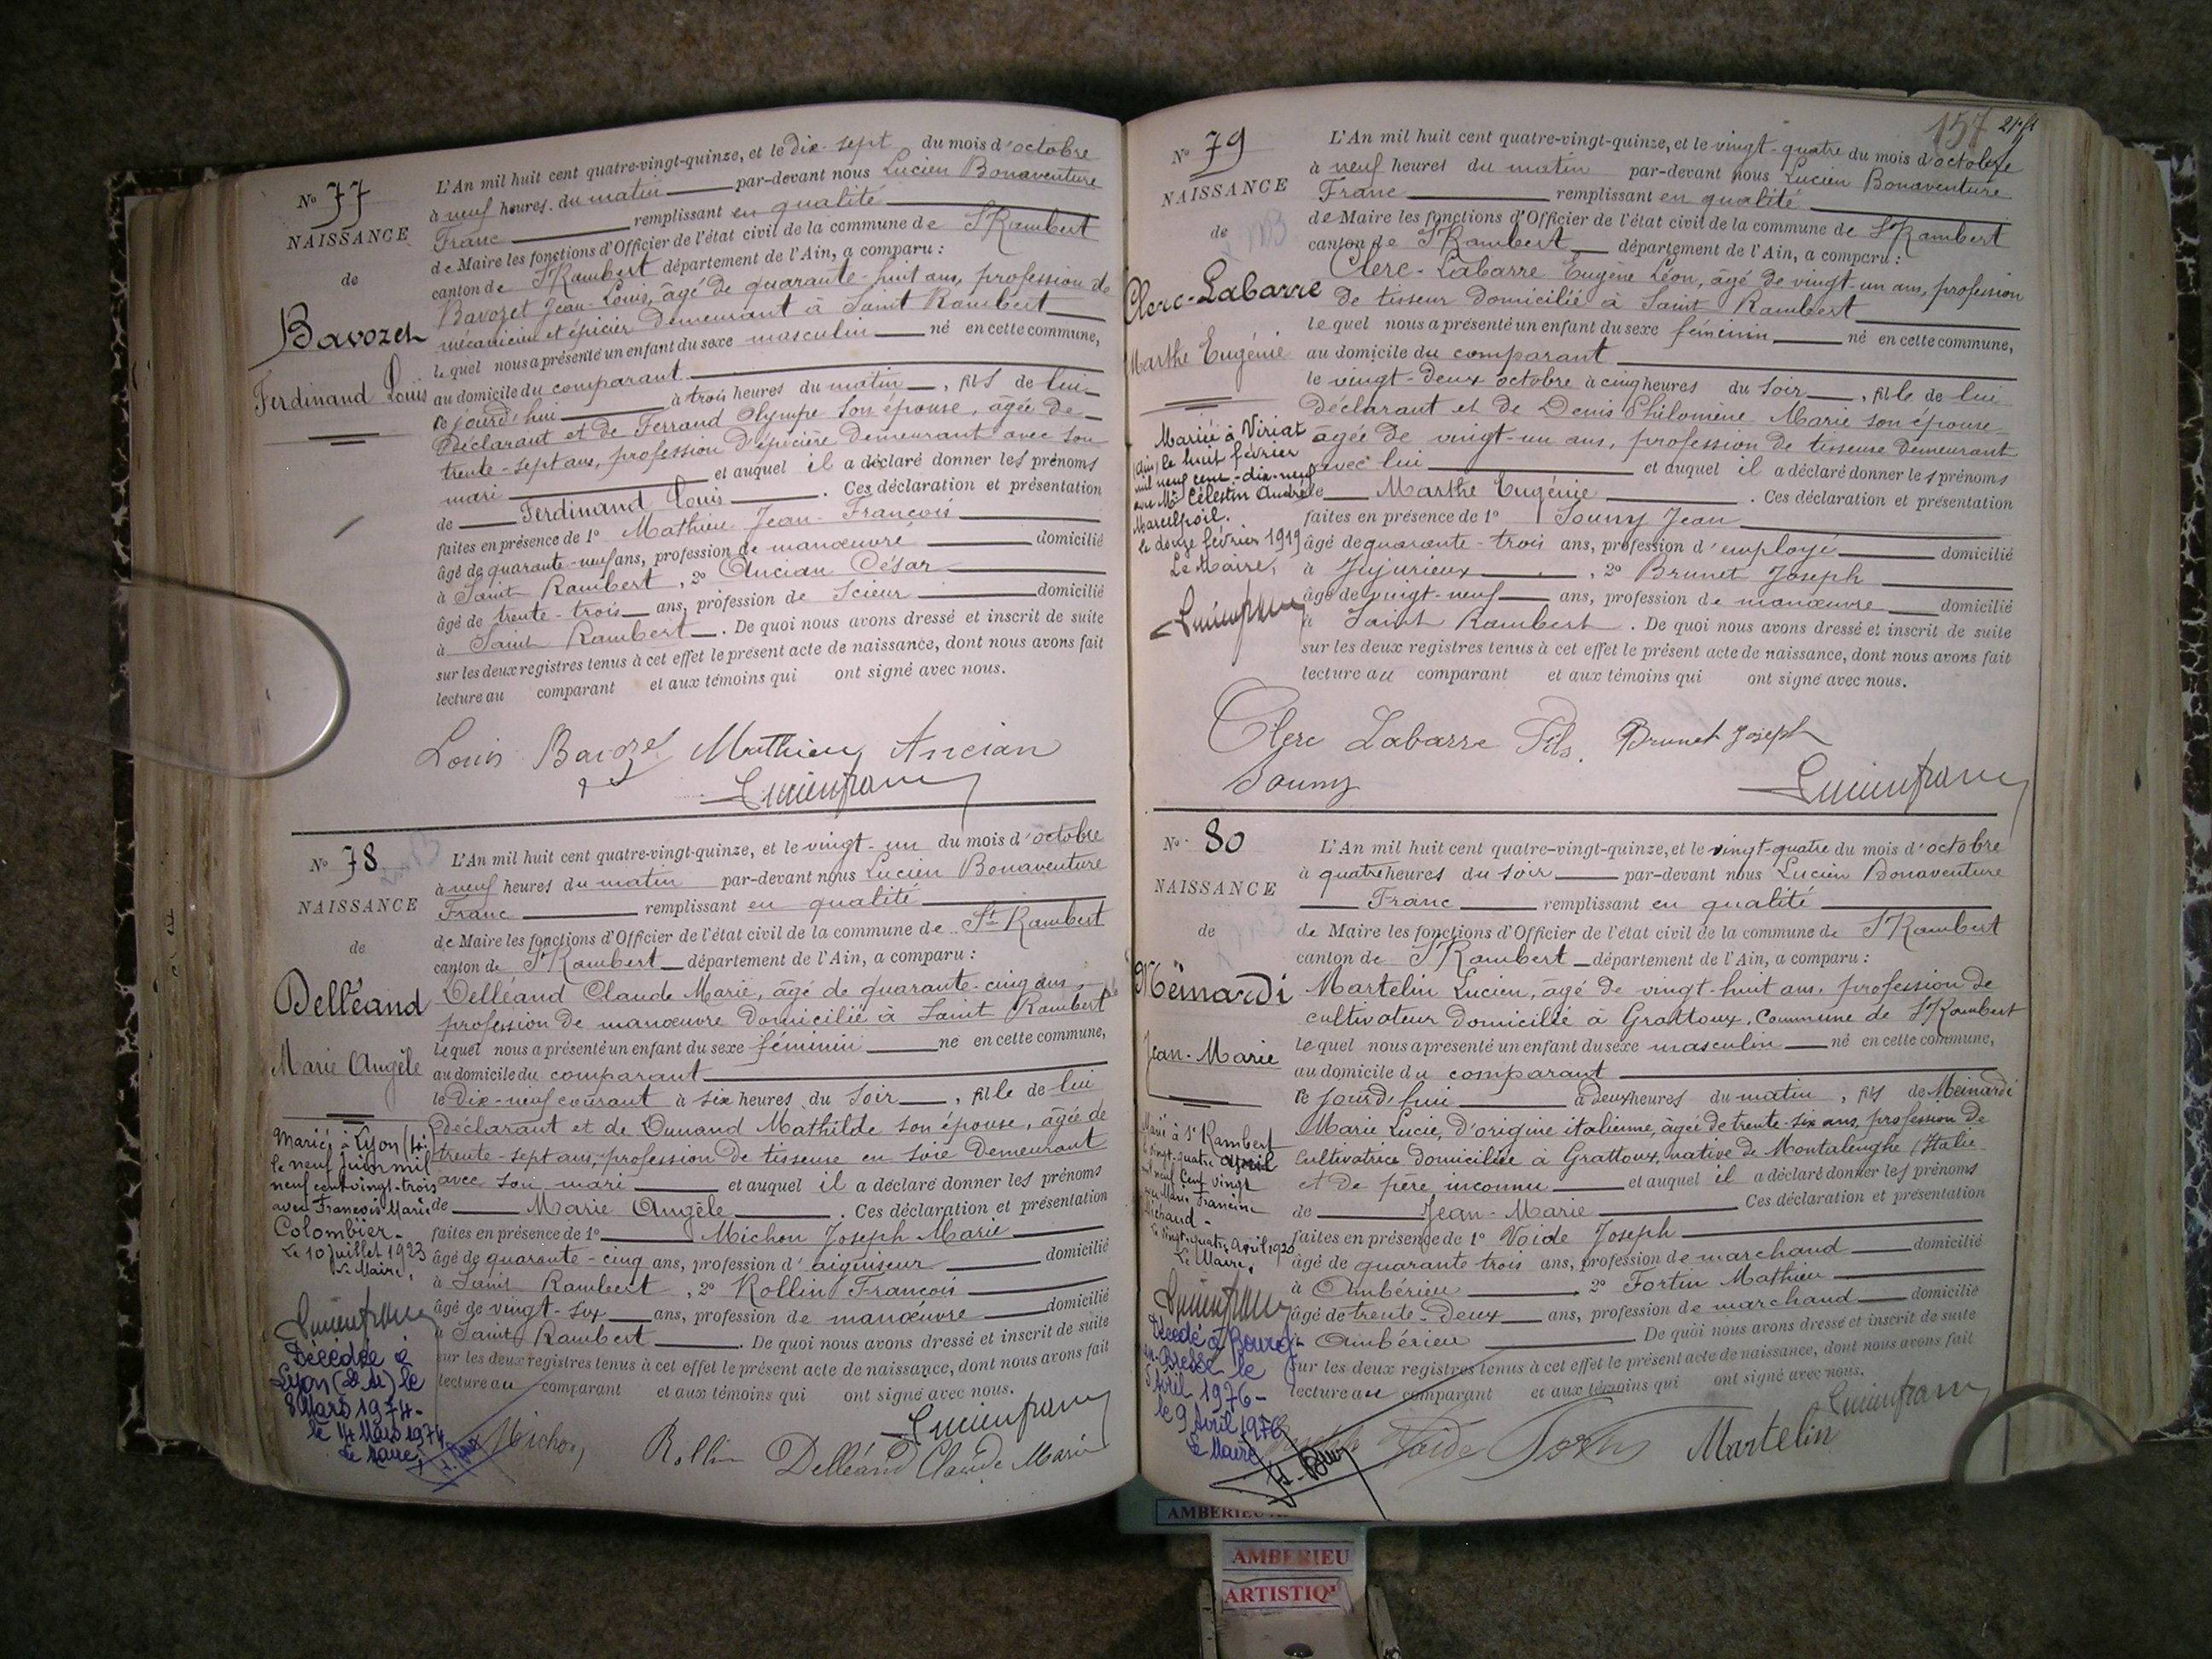 No 77
NAISSANCE
de
Bavozet
Ferdinand Louis
L'An mil huit cent quatre-vingt-quinze, et le dix-sept du mois d'octobre
à neuf heures du matin par-devant nous Lucien Bonaventure
Franc remplissant en qualité
de Maire les fonctions d'Officier de l'état civil de la commune de St Rambert
canton de St Rambert département de l'Ain, a comparu :
Bavozet Jean-Louis, âgé de quarante-huit ans, profession de
mécanicien et épicier demeurant à Saint Rambert
lequel nous a présenté un enfant du sexe masculin né en cette commune,
au domicile du comparant
ce jourd'hui à trois heures du matin, fils de lui
déclarant et de Ferrand Olympe son épouse, âgée de
trente-sept ans, profession d'épicière demeurant avec son
mari et auquel il a déclaré donner les prénoms
de Ferdinand Louis. Ces déclaration et présentation
faites en présence de 1o Mathieu Jean-François
âgé de quarante-neuf ans, profession de manœuvre domicilié
à Saint Rambert, 2o Ancian César
âgé de trente-trois ans, profession de scieur domicilié
à Saint Rambert. De quoi nous avons dressé et inscrit de suite
sur les deux registres tenus à cet effet le présent acte de naissance, dont nous avons fait
lecture au comparant et aux témoins qui ont signé avec nous.
Louis Bavozet Mathieu Ancian
Lucien franc
No 78
NAISSANCE
de
Delléand
Marie Angèle
Mariée à Lyon
le neuf juin mil
neuf cent vingt-trois
avec François Marie
Colombier
Le 10 juillet 1923
Le Maire,
Lucien franc
Décédée à
Lyon le
8 Mars 1974-
le 14 Mars 1974
Le Maire,
L'An mil huit cent quatre-vingt-quinze, et le vingt-un du mois d'octobre
à neuf heures du matin par-devant nous Lucien Bonaventure
Franc remplissant en qualité
de Maire les fonctions d'Officier de l'état civil de la commune de St Rambert
canton de St Rambert département de l'Ain, a comparu :
Delléand Claude Marie, âgé de quarante-cinq ans,
profession de manœuvre domicilié à Saint Rambert
lequel nous a présenté un enfant du sexe féminin né en cette commune,
au domicile du comparant
le dix-neuf courant à six heures du soir, fille de lui
déclarant et de Dunand Mathilde son épouse, âgée de
trente-sept ans, profession de tisseuse en soie demeurant
avec son mari et auquel il a déclaré donner les prénoms
de Marie Angèle. Ces déclaration et présentation
faites en présence de 1o Michon Joseph Marie
âgé de quarante-cinq ans, profession d'aiguiseur domicilié
à Saint Rambert, 2o Rollin François
âgé de vingt-six ans, profession de manœuvre domicilié
à Saint Rambert. De quoi nous avons dressé et inscrit de suite
sur les deux registres tenus à cet effet le présent acte de naissance, dont nous avons fait
lecture au comparant et aux témoins qui ont signé avec nous.
Lucien franc
Michon Rollin Delléand Claude Marie
157
No 79
NAISSANCE
de
Clerc-Labarre
Marthe Eugénie
Mariée à Viriat
(Ain) le huit février
mil neuf cent-dix-neuf
avec Mr Célestin André
Marcelpoil.
le douze février 1919
Le Maire,
Lucien franc
L'An mil huit cent quatre-vingt-quinze, et le vingt-quatre du mois d'octobre
à neuf heures du matin par-devant nous Lucien Bonaventure
Franc remplissant en qualité
de Maire les fonctions d'Officier de l'état civil de la commune de St Rambert
canton de St Rambert département de l'Ain, a comparu :
Clerc-Labarre Eugène Léon, âgé de vingt-un ans, profession
de tisseur domicilié à Saint Rambert
lequel nous a présenté un enfant du sexe féminin né en cette commune,
au domicile du comparant
le vingt-deux octobre à cinq heures du soir, fille de lui
déclarant et de Denis Philomène Marie son épouse
âgée de vingt-un ans, profession de tisseuse demeurant
avec lui et auquel il a déclaré donner les prénoms
de Marthe Eugénie. Ces déclaration et présentation
faites en présence de 1o Souny Jean
âgé de quarante-trois ans, profession d'employé domicilié
à Jujurieux, 2o Brunet Joseph
âgé de vingt-neuf ans, profession de manœuvre domicilié
à Saint Rambert. De quoi nous avons dressé et inscrit de suite
sur les deux registres tenus à cet effet le présent acte de naissance, dont nous avons fait
lecture au comparant et aux témoins qui ont signé avec nous.
Clerc Labarre Fils. Brunet Joseph
Souny Lucien franc
No 80
NAISSANCE
de
Meïnardi
Jean-Marie
Marié à St Rambert
le vingt-quatre april
mil neuf Cent vingt
avec Marie Francine
Michaud-
Le vingt-quatre April 1920
Le Maire,
Lucien franc
Décédé à Bourg-
en-Bresse le
Avril 1976-
le 9 Avril 1976
Le Maire
L'An mil huit cent quatre-vingt-quinze, et le vingt-quatre du mois d'octobre
à quatre heures du soir par-devant nous Lucien Bonaventure
Franc remplissant en qualité
de Maire les fonctions d'Officier de l'état civil de la commune de St Rambert
canton de St Rambert département de l'Ain, a comparu :
Martelin Lucien, âgé de vingt-huit ans, profession de
cultivateur domicilié à Grattoux, Commune de St Rambert
lequel nous a présenté un enfant du sexe masculin né en cette commune,
au domicile du comparant
ce jourd'hui à deux heures du matin, fils de Meinardi
Marie Lucie, d'origine italienne, âgée de trente-six ans, profession de
cultivatrice domiciliée à Grattoux, native de Montalenghe (Italie
et de père inconnu et auquel il a déclaré donner les prénoms
de Jean-Marie Ces déclaration et présentation
faites en présence de 1o Voide Joseph
âgé de quarante trois ans, profession de marchand domicilié
à Ambérieu, 2o Fortin Mathieu
âgé de trente-deux ans, profession de marchand domicilié
à Ambérieu De quoi nous avons dressé et inscrit de suite
sur les deux registres tenus à cet effet le présent acte de naissance, dont nous avons fait
lecture au comparant et aux témoins qui ont signé avec nous.
Lucien franc
Joseph Voide Martelin
AMBERIEU
AMBERIEU
ARTISTIQ